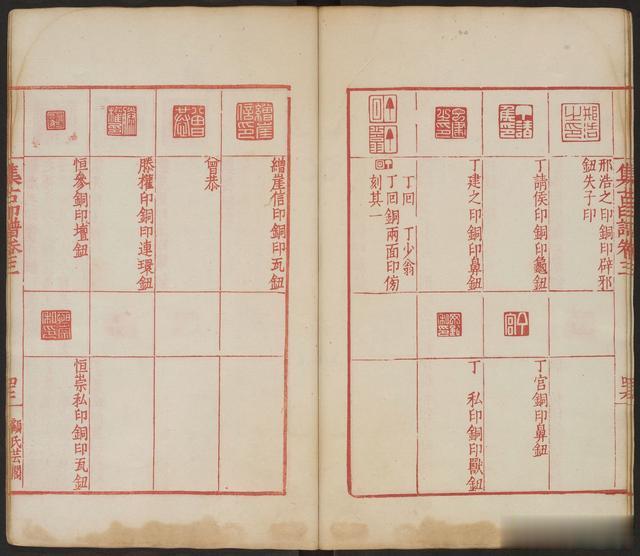 集古印譜卷三
邢浩之印銅印辟邪
鈕失子印
丁請侯印銅印龜鈕
丁建之印銅印鼻鈕
丁回 丁少翁
丁回銅兩面印傍
刻其一
丁官銅印鼻鈕
丁 私印銅印獸鈕
繒崖信印銅印瓦鈕
曾恭
滕權印銅印連環鈕
恒參銅印壇鈕
恒崇私印銅印瓦鈕
集古印譜卷三
顧氏芸閣